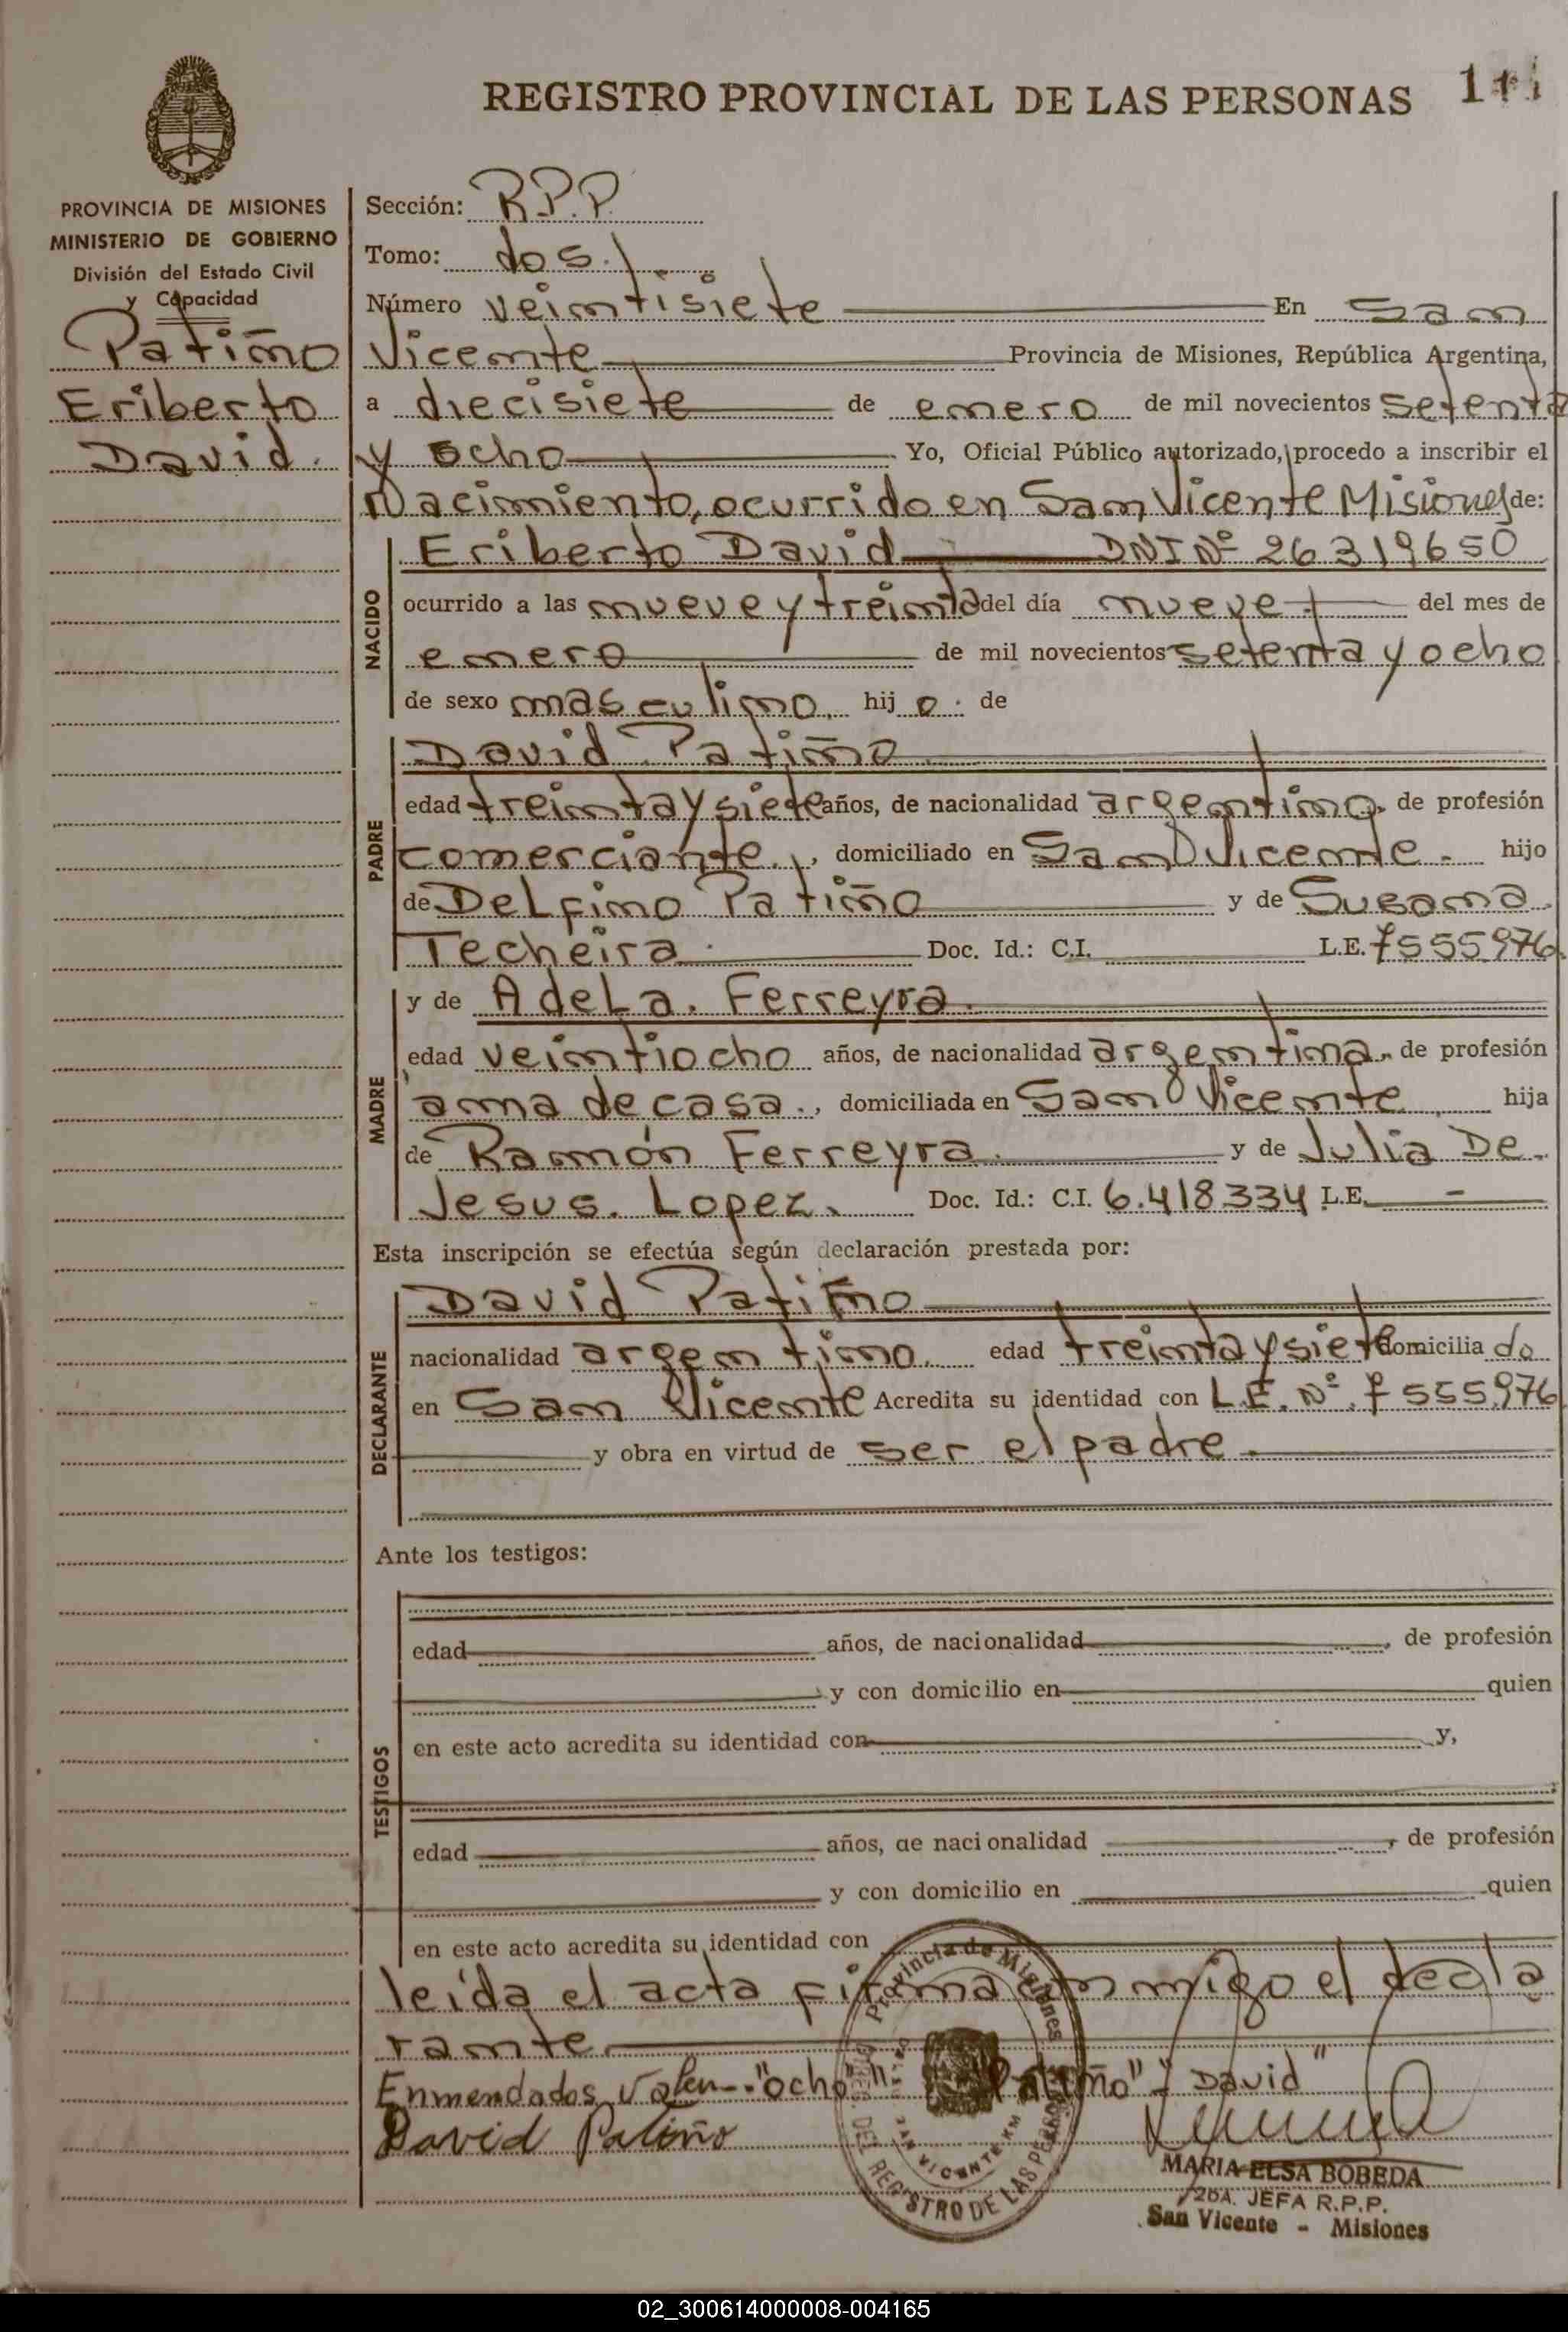 REGISTRO PROVINCIAL DE LAS PERSONAS
PROVINCIA DE MISIONES
MINISTERIO DE GOBIERNO
División del Estado Civil
y Capacidad
Patiño
Eriberto
David.
Sección: R.P.P.
Tomo: dos.
Número veintisiete En San
Vicente Provincia de Misiones, República Argentina,
a diecisiete de enero de mil novecientos setenta
y ocho Yo, Oficial Público autorizado, procedo a inscribir el
Nacimiento, ocurrido en San Vicente Misiones de:
NACIDO
Eriberto David DNI Nº 26319650
ocurrido a las nueve y treinta del día nueve. del mes de
enero de mil novecientos setenta y ocho
de sexo masculino. hij o. de
PADRE
David Patiño
edad treinta y siete años, de nacionalidad argentino, de profesión
comerciante., domiciliado en San Vicente. hijo
de Delfino Patiño y de Susana
Techeira. Doc. Id.: C.I. L.E. 7555976
MADRE
y de Adela. Ferreyra.
edad veintiocho años, de nacionalidad argentina, de profesión
ama de casa., domiciliada en San Vicente hija
de Ramón Ferreyra. y de Julia De.
Jesus. Lopez. Doc. Id.: C.I. 6.418334 L.E. -
Esta inscripción se efectúa según declaración prestada por:
DECLARANTE
David Patiño
nacionalidad argentino. edad treinta y siete domicilia do
en San Vicente Acredita su identidad con L.E. Nº. 7555976
y obra en virtud de ser el padre.
Ante los testigos:
TESTIGOS
edad años, de nacionalidad , de profesión
y con domicilio en quien
en este acto acredita su identidad con y,
edad años, de nacionalidad , de profesión
y con domicilio en quien
en este acto acredita su identidad con
leída el acta firma conmigo el decla
rante
Enmendados Valen-"ocho" "Patiño" - "David"
David Patiño
Provincia de Misiones
DEL REGISTRO DE LAS PERSONAS
SAN VICENTE
MARIA ELSA BOBEDA
JEFA R.P.P.
San Vicente - Misiones
02_300614000008-004165